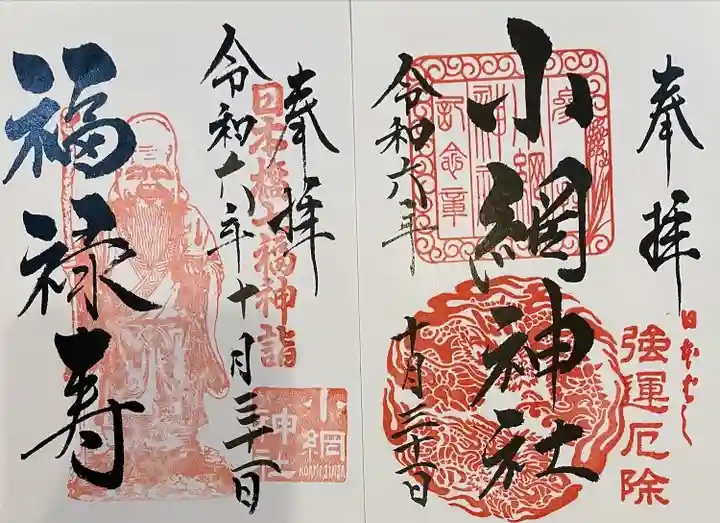 奉拝
日本ばし
強運厄除
小網神社
参拝
小網
神社
記念章
令和六年
十月三十一日
奉拝
日本橋七福神詣
令和六年十月三十一日
小網
神社
KOAMI JINJA
福禄寿